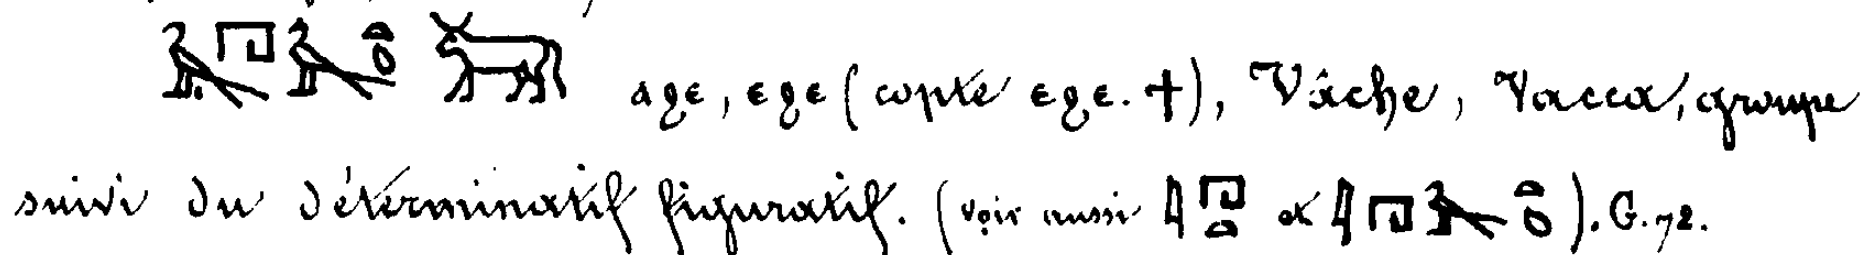 𓄿𓉔𓄿𓏏𓆇𓃒 ⲁϩⲉ, ⲉϩⲉ (copte ⲉϩⲉ. †), Vâche, Vacca, groupe
suivi du déterminatif figuratif. (voir aussi 𓇋𓉔𓏏 et 𓇋𓉔𓄿𓏏𓆇). G. 72.